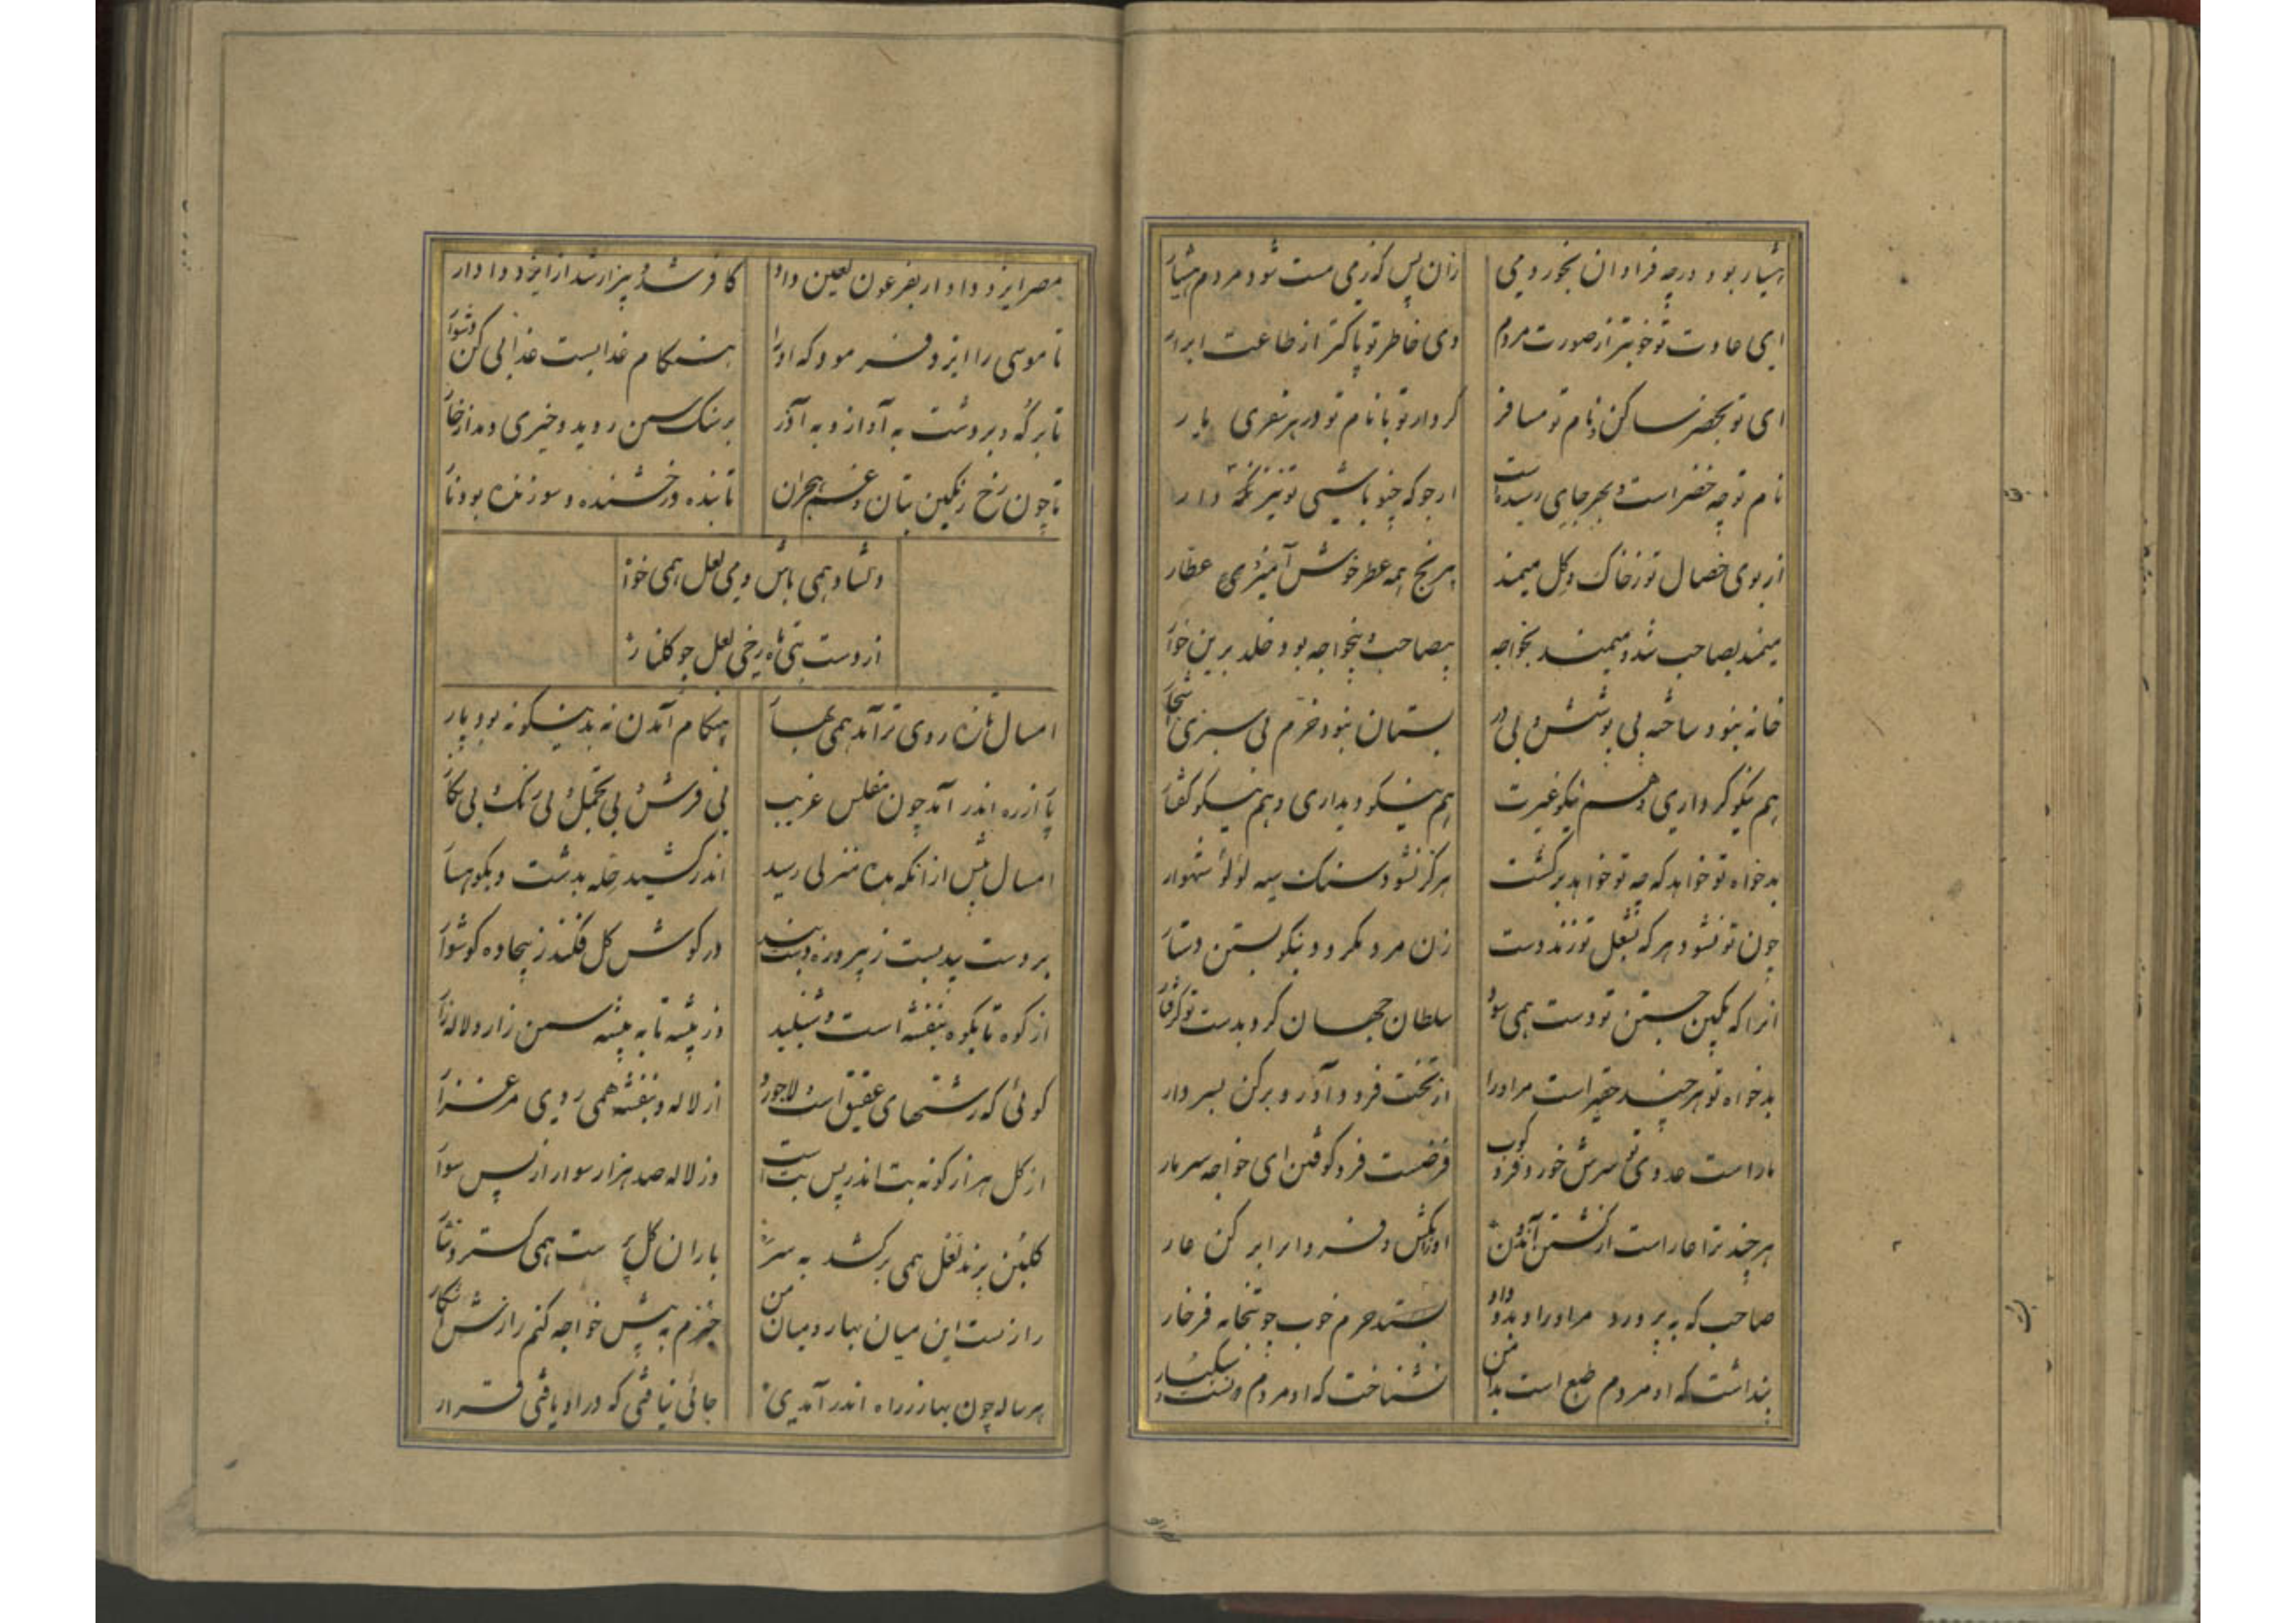 هشیار بود ورچه فراوان بخورد می	زان پس که زمی مست شود مردم هشیار
ای عادت تو خوبتر از صورت مردم	وی خاطر تو پاکتر از طاعت ابرار
ای تو بحضر ساکن و نام تو مسافر	کردار تو با نام تو در هر سفری یار
نام تو چه خضر است و بهر جای رسیده است	ارجو که چنو باشی تو نیز نکه دار
از بوی خصال تو ز خاک و گل میمند	بیرنج همه عطر خوش آمیزد عطار
میمند بصاحب شد و میمند بخواجه	بیصاحب و بیخواجه بود خلد برین خوار
خانه نبود ساخته بی پوشش و بی در	بستان نبود خرم بی سبزی اشجار
هم نیکو کرداری و هم نیکو غیرت	هم نیکو دیداری و هم نیکو گفتار
بدخواه تو خواهد که چه تو خواهد برگشت	هرگز نشود سنک سیه لؤلؤ شهوار
چون تو نشود هر که بشغل تو زند دست	زن مرد نکردد و نیکو بستن دستار
انرا که بکین جستن تو دست همی سود	سلطان جهان کرد بدست تو گرفتار
بدخواه تو هر چند حقیر است مر اورا	از تخت فرود آور و برکن بسر دار
مار است عدوی تو سرش خورد فرو کوب	فرضست فرو کوفتن ای خواجه سر مار
هر چند ترا عار است از کشتن آندون	او را بکش و فردا برابر کن عار
صاحب که به پرورد مر او را و بدو داد	بستد حرم خوب چو بتخانه فرخار
پنداشت که او مردم طبع است بدامن	نشناخت که او مردم
مصر ایزد دادار بفرعون لعین داد	کافر شد و بیزار شد از ایزد دادار
تا موسی را ایزد فرمود که او را	هنگام عذابست عذابی کن دشوار
تا بر که و بر دشت به آزار و به آذر	بر سنک سمن روید و خیری دمد از خار
تا چون رخ رنکین بتان و غم هجران	تابنده و رخشنده و سوزنده بود نار
دلشاد همی باش و می لعل همی خوار
از دست بتی ماه رخی لعل چو گلنار
امسال تازه روی تر آمد همی بهار	هنکام آمدن نه بدینکونه بود پار
پار از ره اندر آمد چون مفلس غریب	بی فرش و بی تجمل و بی رنک و بی نکار
امسال پیش از انکه بده منزلی رسید	اندر کشید حله بدشت و بکوهسار
بر دست بید بست ز پیروزه دستبند	در کوش کل فکند ز بیجاده کوشوار
از کوه تا بکوه بنفشه است و شنبلید	وز پیشه تا به پیشه سمن زار و لاله زار
کوئی که رشتهای عقیق است و لاجورد	از لاله و بنفشه همی روی مرغزار
از کل هزار کونه بت اندر پس بت است	وز لاله صد هزار سوار از پس سوار
کلبن پرند لعل همی برکشد به سر	باران کل پرست همی کسترد نثار
رازیست این میان بهار و میان من	خیزم به پیش خواجه کنم رازش آشکار
هر ساله چون بهار ز راه اندر آمدی	جائی نیافتی که در او یافتی قرار